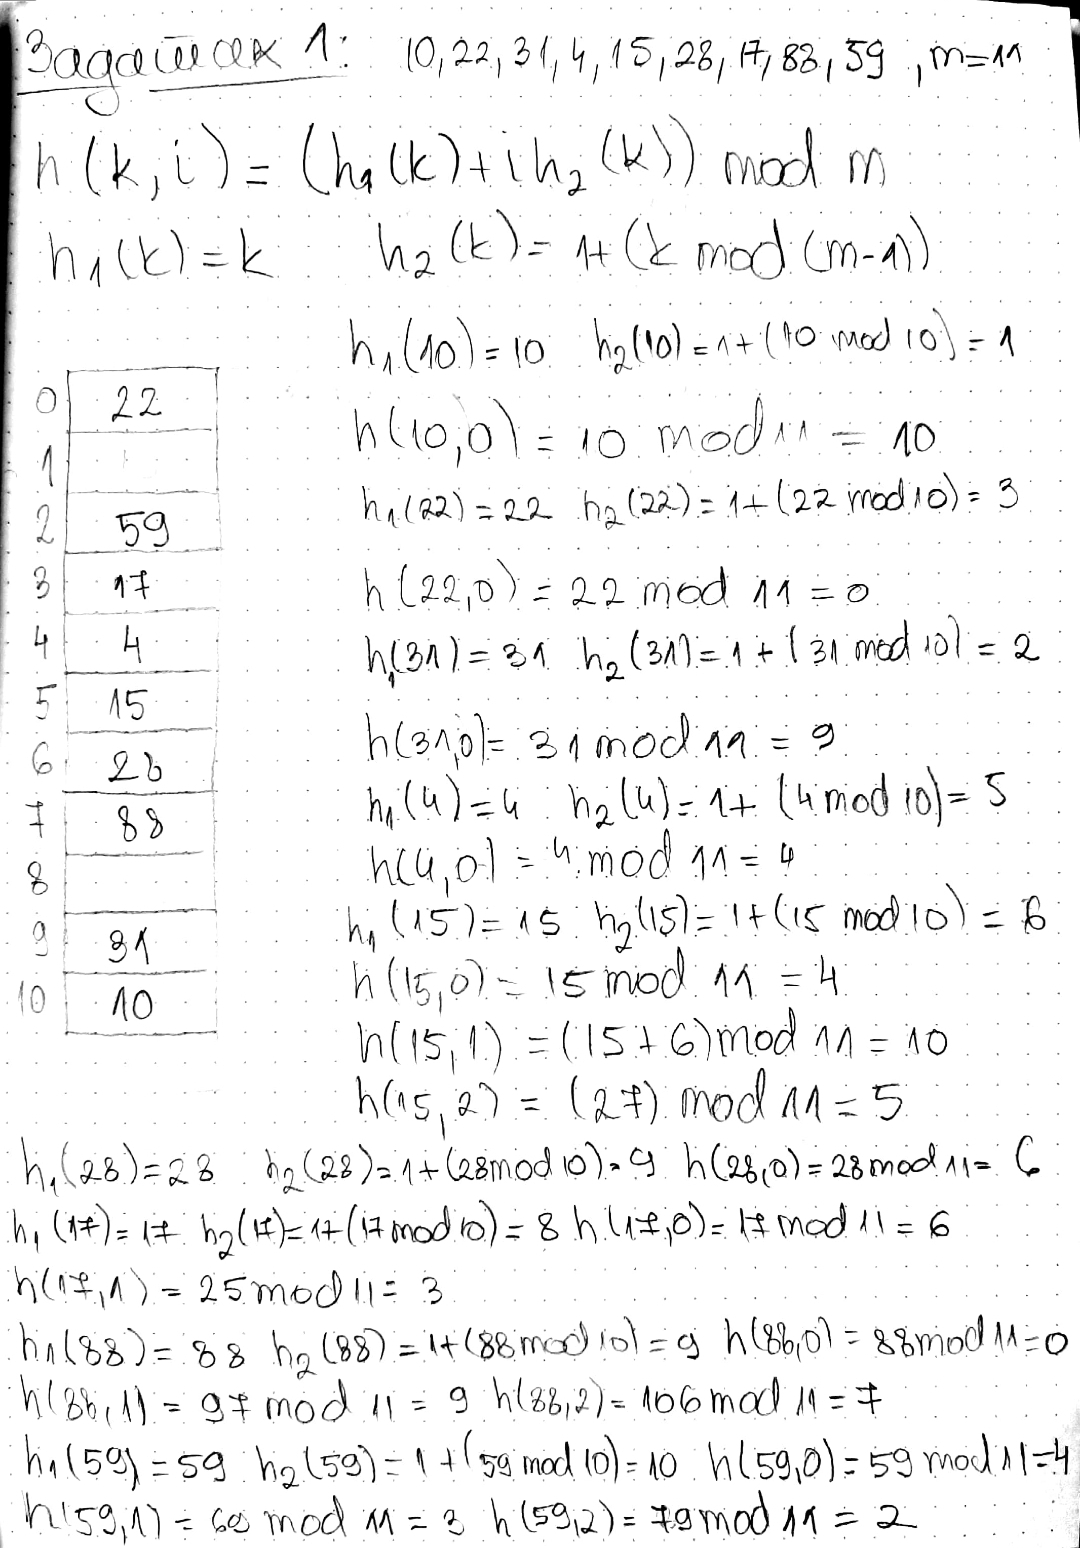 Задатак 1: 10, 22, 31, 4, 15, 28, 17, 88, 59, m=11
h(k,i) = (h₁(k)+ih₂(k)) mod m
h₁(k)=k h₂(k)= 1+(k mod (m-1))
h₁(10)=10 h₂(10)=1+(10 mod 10)=1
0 22
h(10,0)=10 mod 11 = 10
1
h₁(22)=22 h₂(22)=1+(22 mod 10)=3
2 59
3 17
h(22,0)=22 mod 11=0
4 4
h₁(31)=31 h₂(31)=1+(31 mod 10)=2
5 15
h(31,0)=31 mod 11=9
6 28
h₁(4)=4 h₂(4)=1+(4 mod 10)=5
7 88
h(4,0)=4 mod 11=4
8
h₁(15)=15 h₂(15)=1+(15 mod 10)=6
9 31
h(15,0)=15 mod 11=4
10 10
h(15,1)=(15+6) mod 11=10
h(15,2)=(27) mod 11=5
h₁(28)=28 h₂(28)=1+(28 mod 10)=9 h(28,0)=28 mod 11=6
h₁(17)=17 h₂(17)=1+(17 mod 10)=8 h(17,0)=17 mod 11=6
h(17,1)=25 mod 11=3
h₁(88)=88 h₂(88)=1+(88 mod 10)=9 h(88,0)=88 mod 11=0
h(88,1)=97 mod 11=9 h(88,2)=106 mod 11=7
h₁(59)=59 h₂(59)=1+(59 mod 10)=10 h(59,0)=59 mod 11=4
h(59,1)=69 mod 11=3 h(59,2)=79 mod 11=2